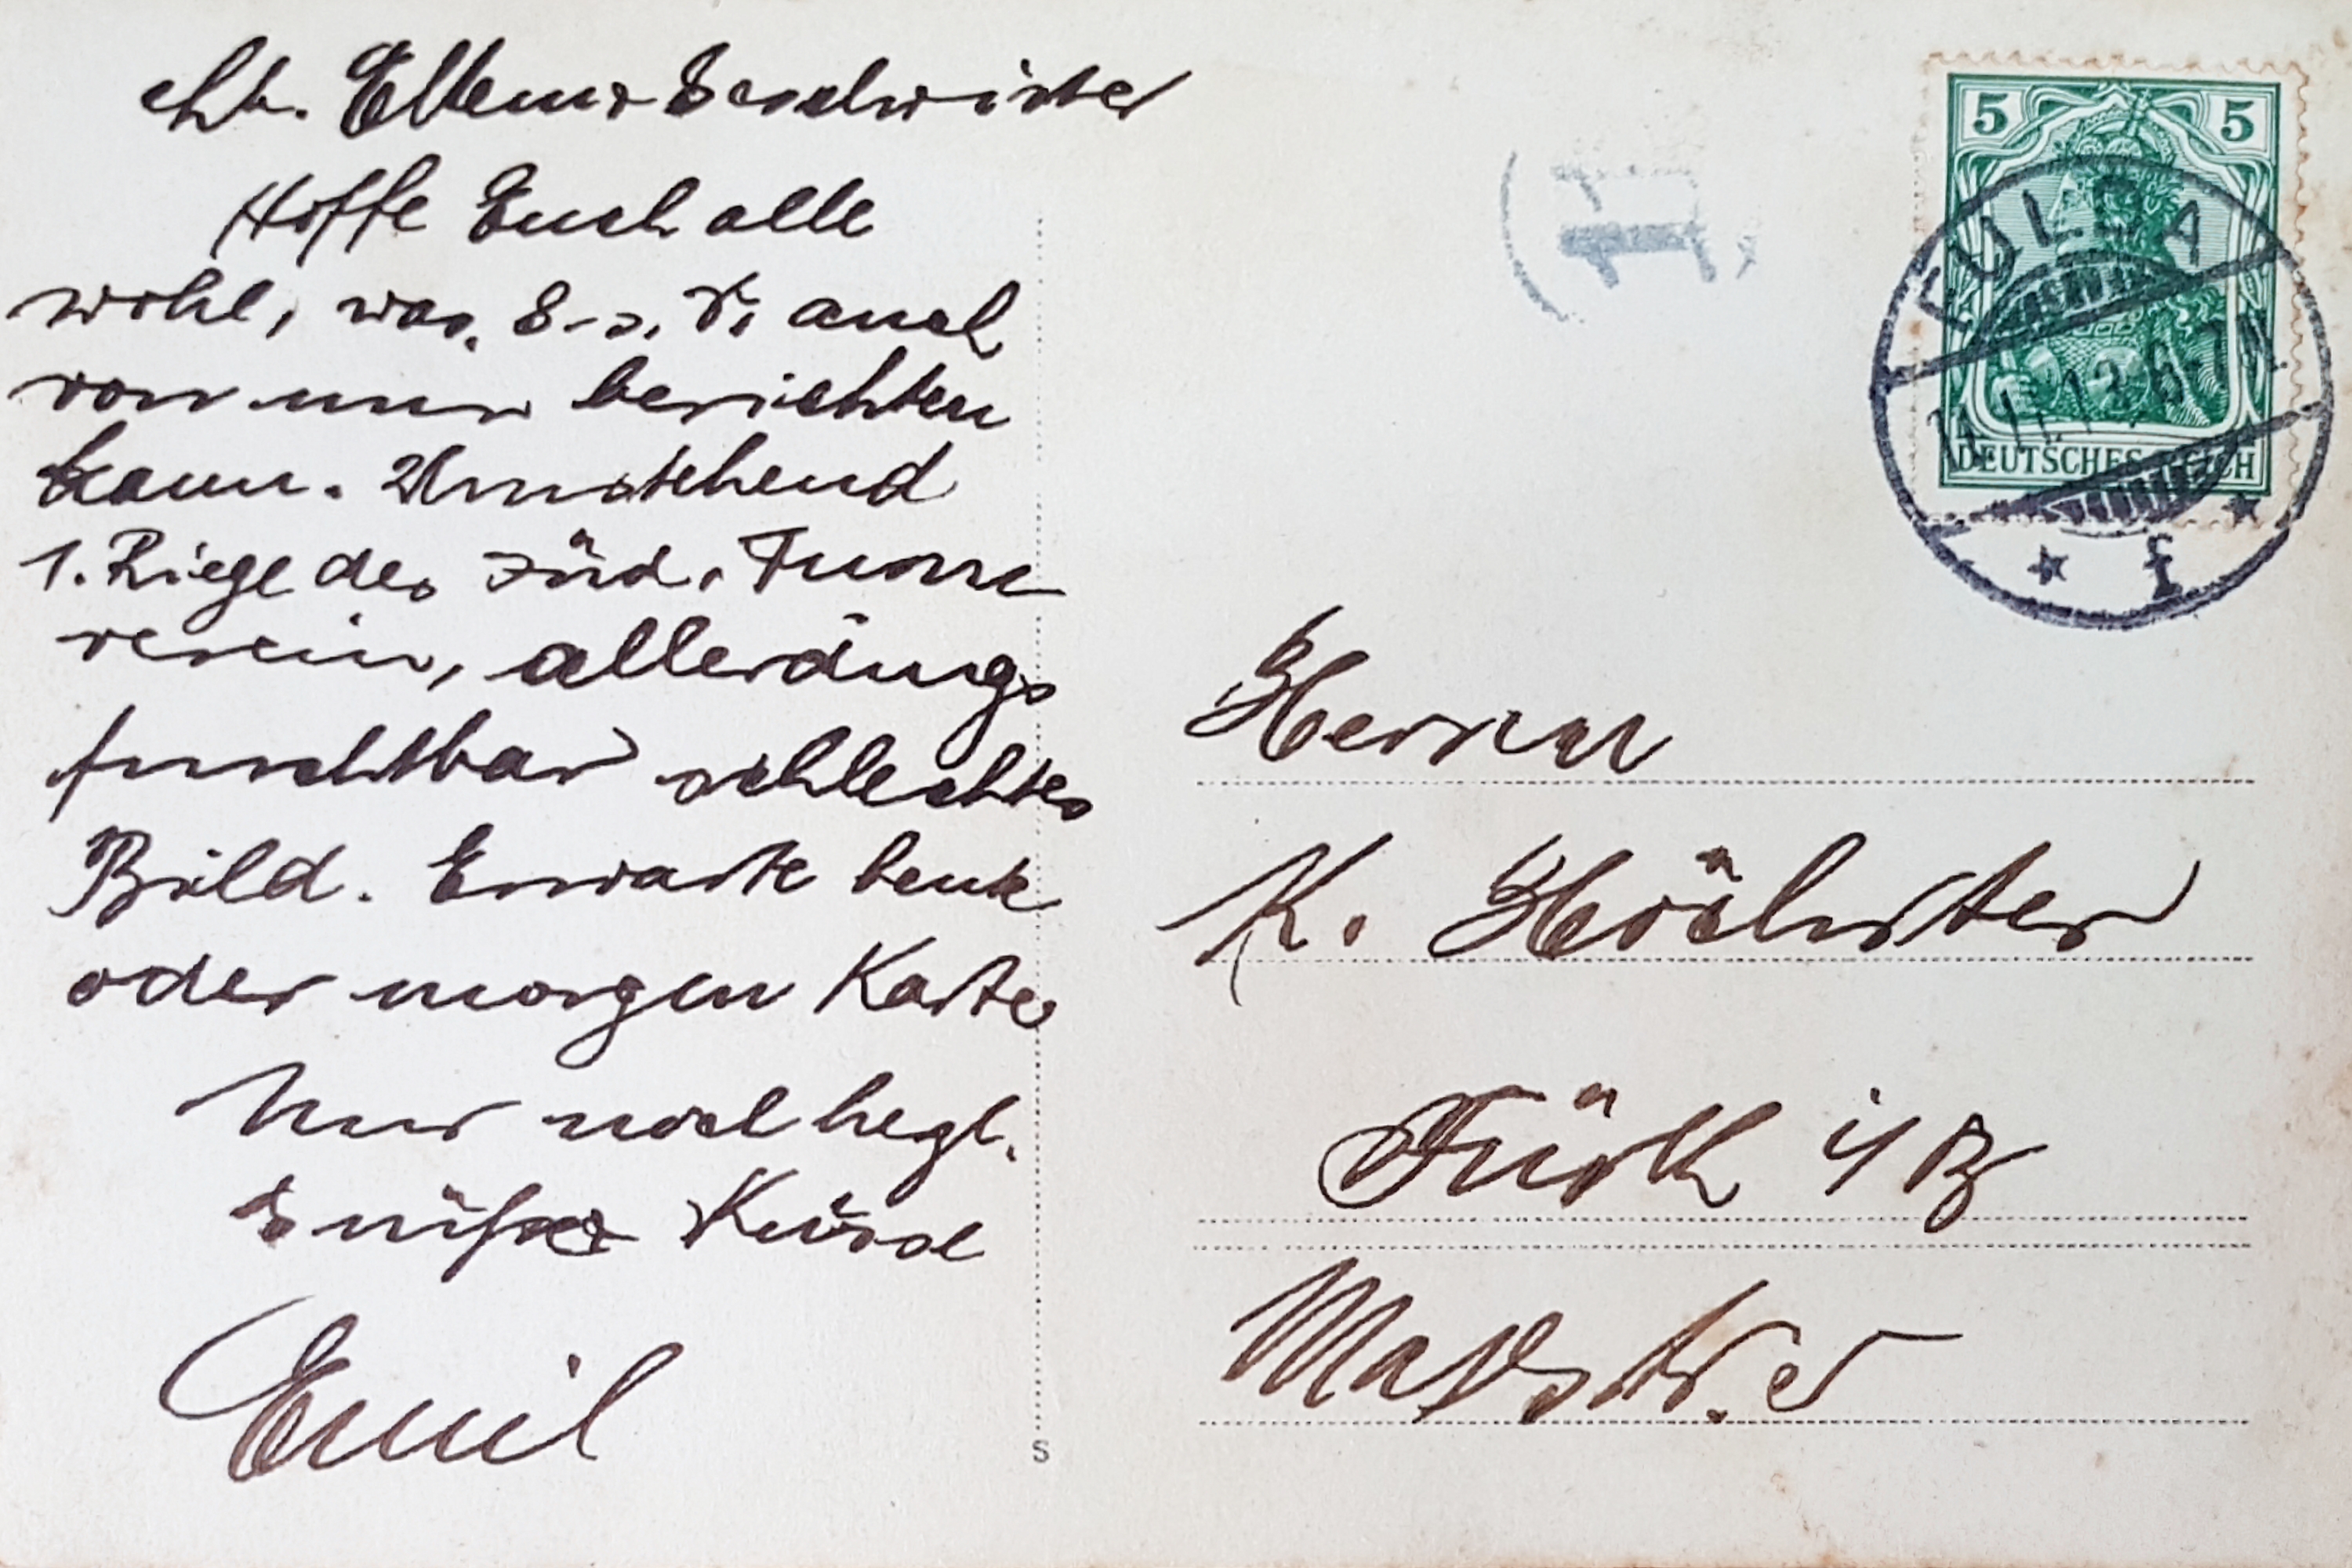 Lb. Eltern & Geschwister
Hoffe Euch alle
wohl, was, G. s. D. auch
von mir berichten
kann. Umstehend
1. Riege des Jüd. Turn
verein, allerdings
furchtbar schlechtes
Bild. Erwarte heute
oder morgen Karte
Nur noch hrzl.
Grüße & Küsse
Emil
5 5
FULDA
11.12. 6-7 N.
DEUTSCHES REICH
* f *
Herrn
K. Höchster
Fürth i/B
Maxstr.
S